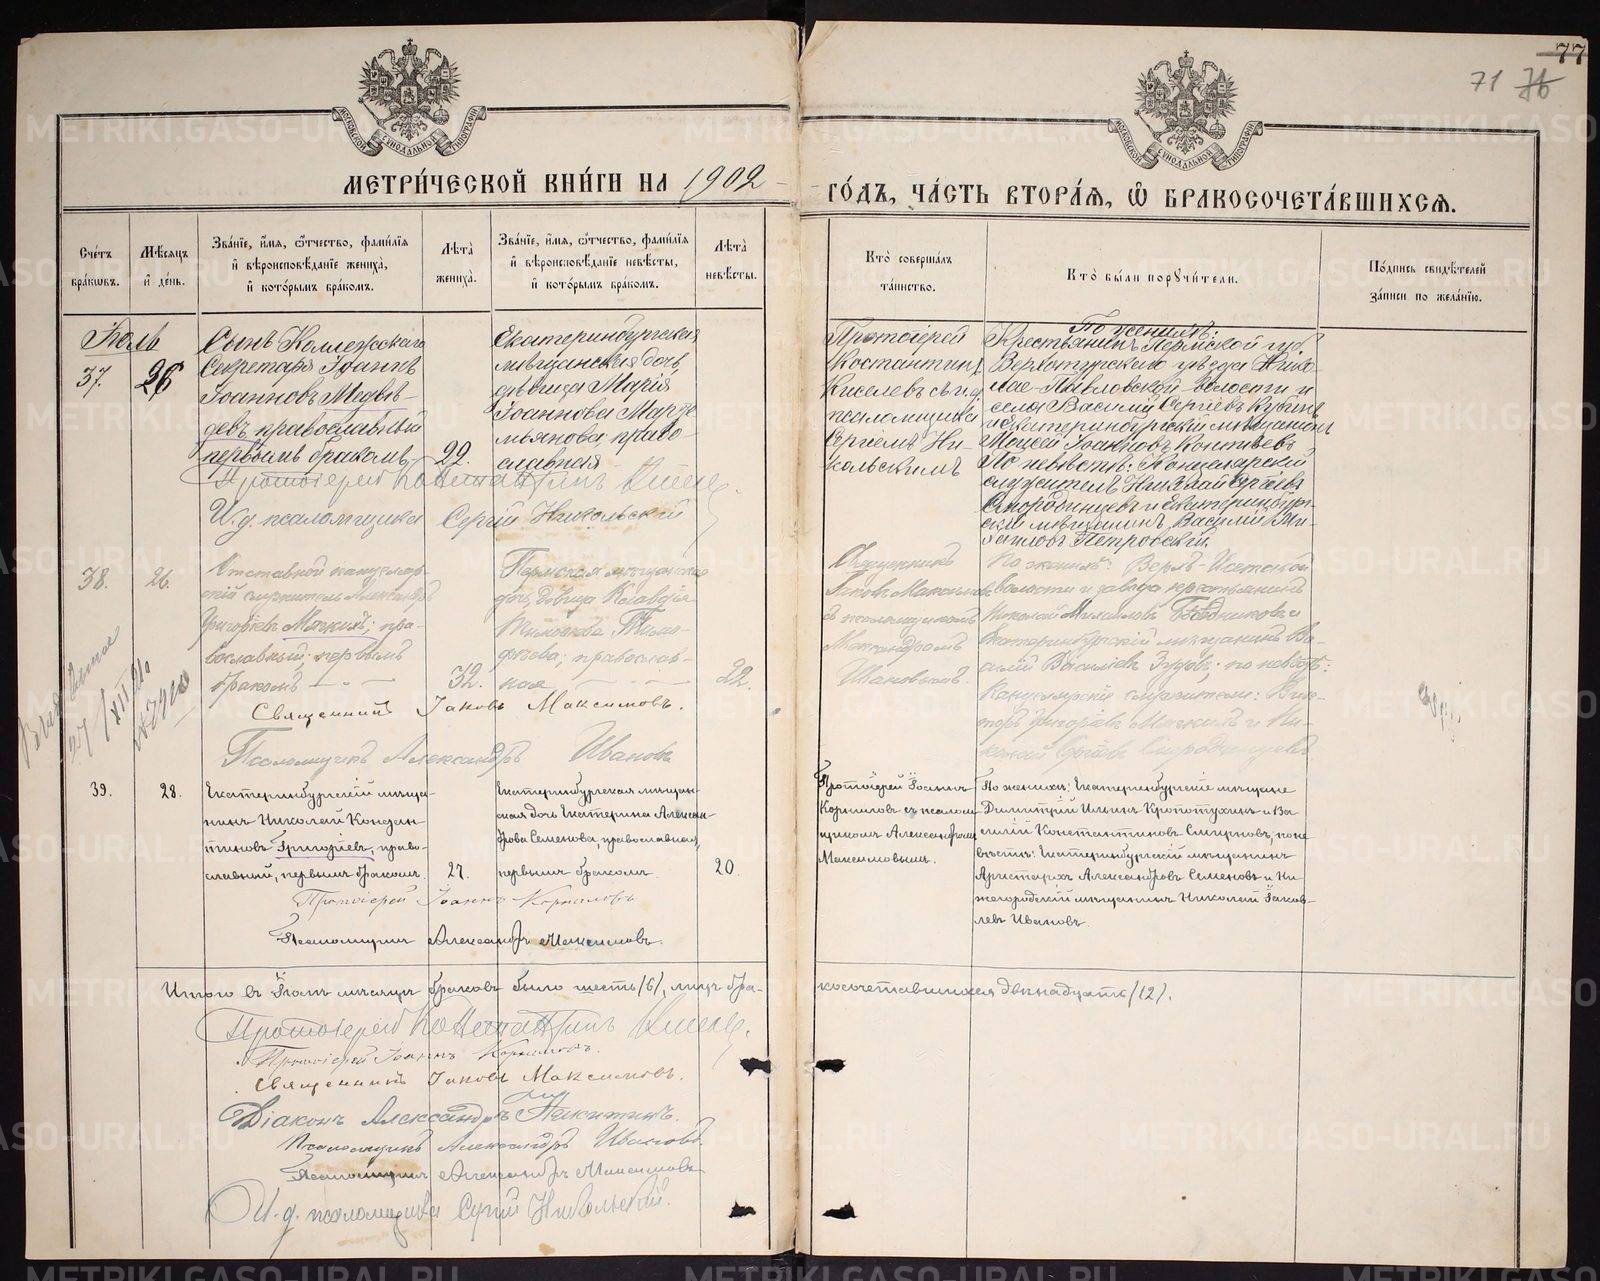 77
71 76
МОСКОВСКОЙ СѴНОДАЛЬНОЙ ТИПОГРАФІИ
МОСКОВСКОЙ СѴНОДАЛЬНОЙ ТИПОГРАФІИ
МЕТРИ́ЧЕСКОЙ КНИ́ГИ НА 1902
ГО́ДЪ, ЧА́СТЬ ВТОРА́Я, Ѽ БРАКОСОЧЕТА́ВШИХСЯ.
Сче́тъ бра́кωвъ.
Мѣ́сяцъ и҆ де́нь.
Зва́нїе, и҆́мя, ѻ҆́тчество, фами́лїя
и҆ вѣроисповѣ́данїе жениха̀,
и҆ кото́рымъ бра́комъ.
Лѣ́та жениха̀.
Зва́нїе, и҆́мя, ѻ҆́тчество, фами́лїя
и҆ вѣроисповѣ́данїе невѣ́сты,
и҆ кото́рымъ бра́комъ.
Лѣ́та невѣ́сты.
Кто̀ соверша́лъ
та́инство.
Кто̀ бы́ли порꙋчи́тели.
По́дпись свидѣ́телей
за́писи по жела́нїю.
Іюль
37.
26
Сынъ Коллежскаго
Секретаря Іоаннъ
Іоанновъ Медвѣ-
девъ православный
первымъ бракомъ
29.
Екатеринбургская
мѣщанская дочь
дѣвица Марія
Іоаннова Марте-
мьянова право-
славная
Протоіерей
Костантинъ
Киселевъ съ и.д.
псаломщика
Сергіемъ Ни-
кольскимъ
По женихѣ:
Крестьянинъ Пермской губ.
Верхотурскаго уѣзда Нико-
лае-Павловской волости и
села Василій Сергіевъ Кубинъ
и Екатеринбургскій мѣщанинъ
Моисей Іоанновъ Коптяевъ
По невѣстѣ: Канцелярскій
служитель Николай Сергіевъ
Смородинцевъ и Екатеринбург-
скій мѣщанинъ Василій Ми-
хаиловъ Петровскій.
Протоіерей Константинъ Киселевъ.
И. д. псаломщика Сергій Никольскій
38.
26.
Отставной канцеляр-
скій служитель Александръ
Григоріевъ Мягкихъ, пра-
вославный; первымъ
бракомъ
32.
Пермская мѣщанская
дочь, дѣвица Клавдія
Тимо-
фѣева; православ-
ная
22.
Священникъ
Іаковъ Максимовъ
съ псаломщикомъ
Александромъ
Ивановымъ.
По женихѣ: Верхъ-Исетской
волости и завода крестьянинъ
Николай Михаиловъ и
Екатеринбургскій мѣщанинъ Ва-
силій Васильевъ Зубовъ; по невѣстѣ:
Канцелярскіе служители: Вик-
торъ Григоріевъ Мягкихъ и Ни-
колай Сергіевъ Смородинцевъ
Священникъ Іаковъ Максимовъ.
Псаломщикъ Александръ Ивановъ
39.
28.
Екатеринбургскій мѣща-
нинъ Николай Констан-
тиновъ Григоріевъ, право-
славный, первымъ бракомъ.
27.
Екатеринбургская мѣщан-
ская дочь Екатерина Алексан-
дрова Семенова, православная,
первымъ бракомъ.
20.
Протоіерей Іоаннъ
Корниловъ съ псалом-
щикомъ Александромъ
Максимовымъ.
По женихѣ: Екатеринбургскіе мѣщане
Димитрій Ильинъ Кропотухинъ и Ва-
силій Константиновъ Смирновъ, по не-
вѣстѣ: Екатеринбургскій мѣщанинъ
Аристархъ Александровъ Семеновъ и Ни-
жегородскій мѣщанинъ Николай Іаков-
левъ Ивановъ.
Протоіерей Іоаннъ Корниловъ
Псаломщикъ Александръ Максимовъ.
Итого въ Іюлѣ мѣсяцѣ браковъ было шесть (6), лицъ бра-
косочетавшихся двѣнадцать (12).
Протоіерей Константинъ Киселевъ.
Протоіерей Іоаннъ Корниловъ.
Священникъ Іаковъ Максимовъ.
Діаконъ Александръ Никитинъ.
Псаломщикъ Александръ Ивановъ.
Псаломщикъ Александръ Максимовъ
И. д. псаломщика Сергій Никольскій.
METRIKI.GASO-URAL.RU